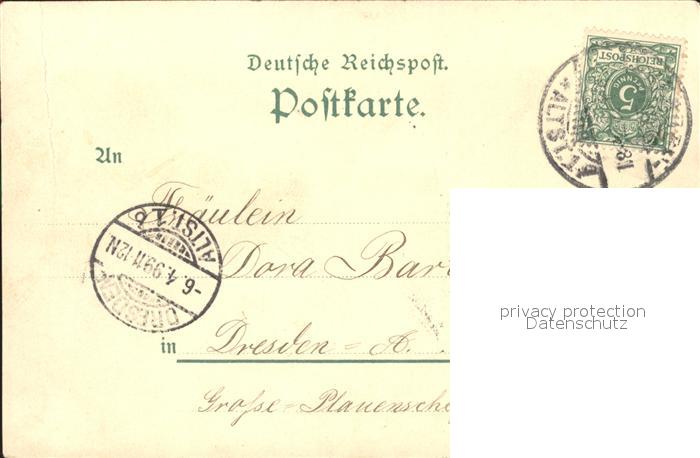 Deutsche Reichspost.
Postkarte.
REICHSPOST
5
PFENNIG
ALTST
An
Fräulein
Dora Bar
in Dresden = A.
Grosse = Plauensche
DRESDEN
-6.4.99.11-12N.
ALTST. 1. b
privacy protection
Datenschutz